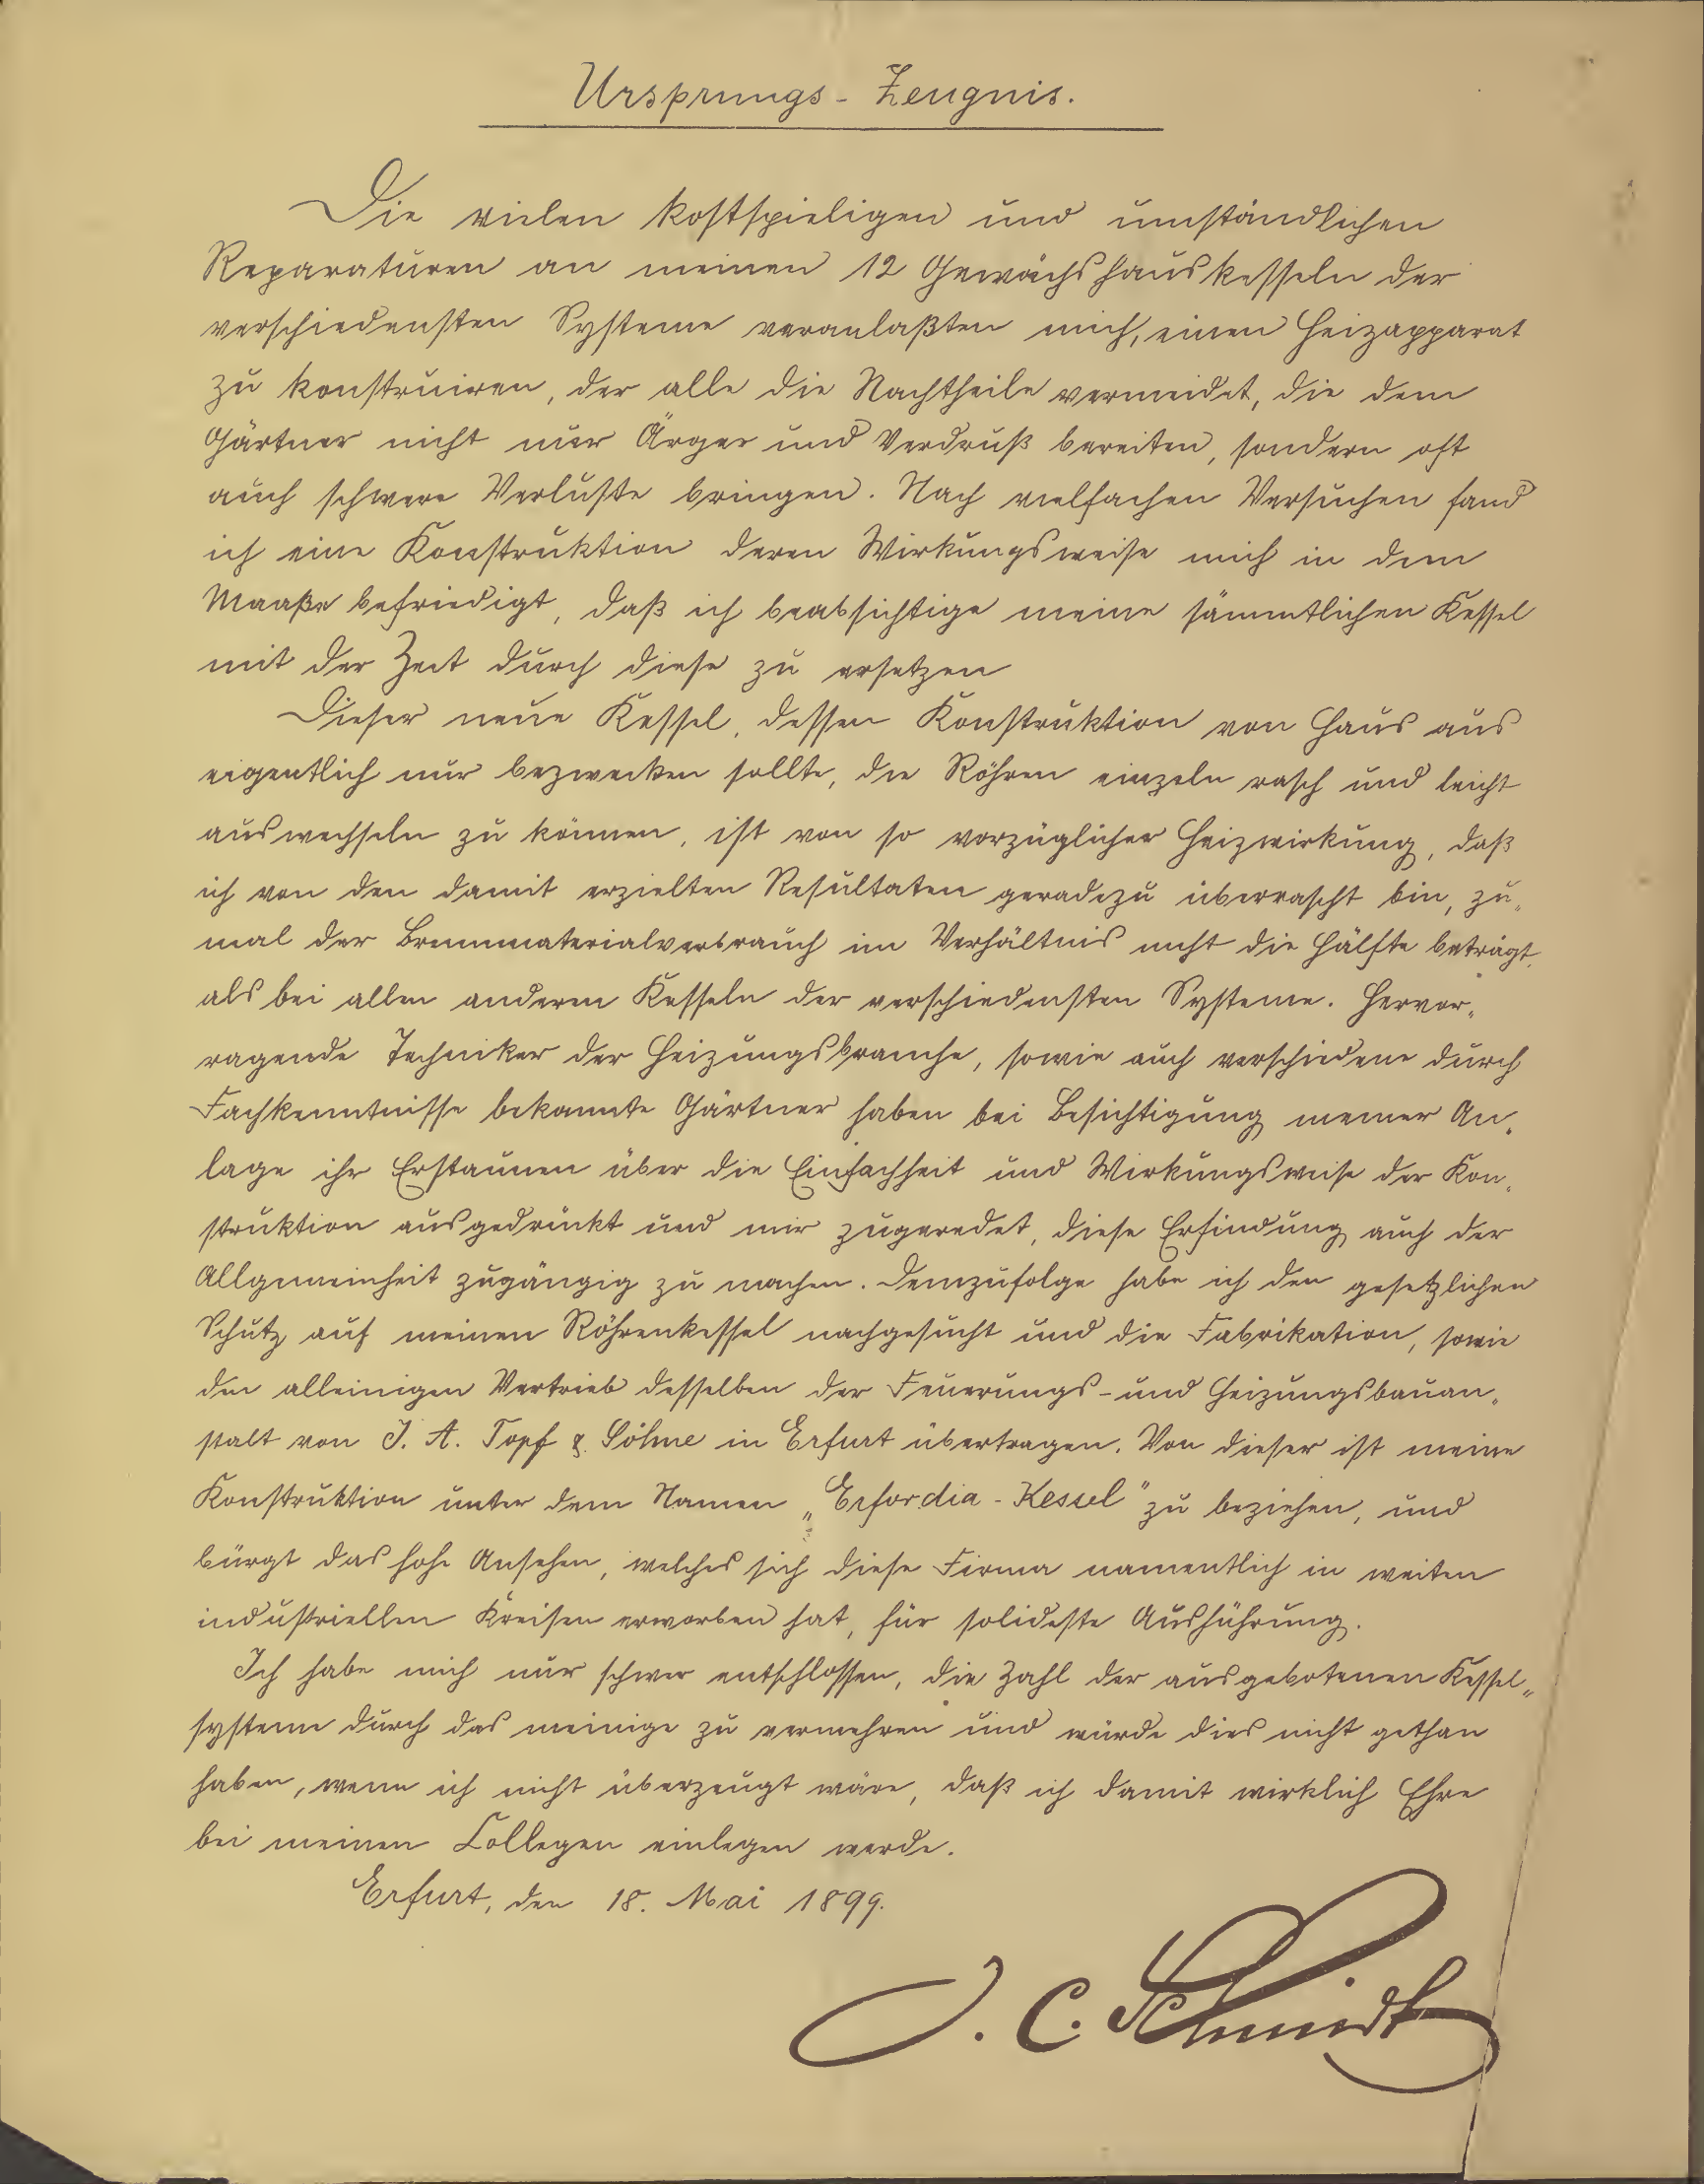 Ursprungs-Zeugnis.
Die vielen kostspieligen und umständlichen
Reparaturen an meinen 12 Gewächshauskesseln der
verschiedensten Systeme veranlaßten mich, einen Heizapparat
zu konstruiren, der alle die Nachtheile vermeidet, die dem
Gärtner nicht nur Ärger und Verdruß bereiten, sondern oft
auch schwere Verluste bringen. Nach vielfachen Versuchen fand
ich eine Konstruktion deren Wirkungsweise mich in dem
Maaße befriedigt, daß ich beabsichtige meine sämmtlichen Kessel
mit der Zeit durch diese zu ersetzen
Dieser neue Kessel, dessen Konstruktion von Haus aus
eigentlich nur bezwecken sollte, die Röhren einzeln rasch und leicht
auswechseln zu können, ist von so vorzüglicher Heizwirkung, daß
ich von den damit erzielten Resultaten geradezu überrascht bin, zu„
mal der Brennmaterialverbrauch im Verhältnis nicht die Hälfte beträgt,
als bei allen anderen Kesseln der verschiedensten Systeme. Hervor„
ragende Techniker der Heizungsbranche, sowie auch verschiedene durch
Fachkenntnisse bekannte Gärtner haben bei Besichtigung meiner An„
lage ihr Erstaunen über die Einfachheit und Wirkungsweise der Kon„
struktion ausgedrückt und mir zugeredet, diese Erfindung auch der
Allgemeinheit zugängig zu machen. Demzufolge habe ich den gesetzlichen
Schutz auf meinen Röhrenkessel nachgesucht und die Fabrikation, sowie
den alleinigen Vertrieb desselben der Feuerungs-und Heizungsbauan„
stalt von J. A. Topf & Söhne in Erfurt übertragen. Von dieser ist meine
Konstruktion unter dem Namen „Erfordia-Kessel" zu beziehen, und
bürgt das hohe Ansehen, welches sich diese Firma namentlich in weiten
industriellen Kreisen erworben hat, für solideste Ausführung.
Ich habe mich nur schwer entschlossen, die Zahl der ausgebotenen Kessel„
systeme durch das meinige zu vermehren und würde dies nicht gethan
haben, wenn ich nicht überzeugt wäre, daß ich damit wirklich Ehre
bei meinen Collegen einlegen werde.
Erfurt, den 18. Mai 1899.
J. C. Schmidt